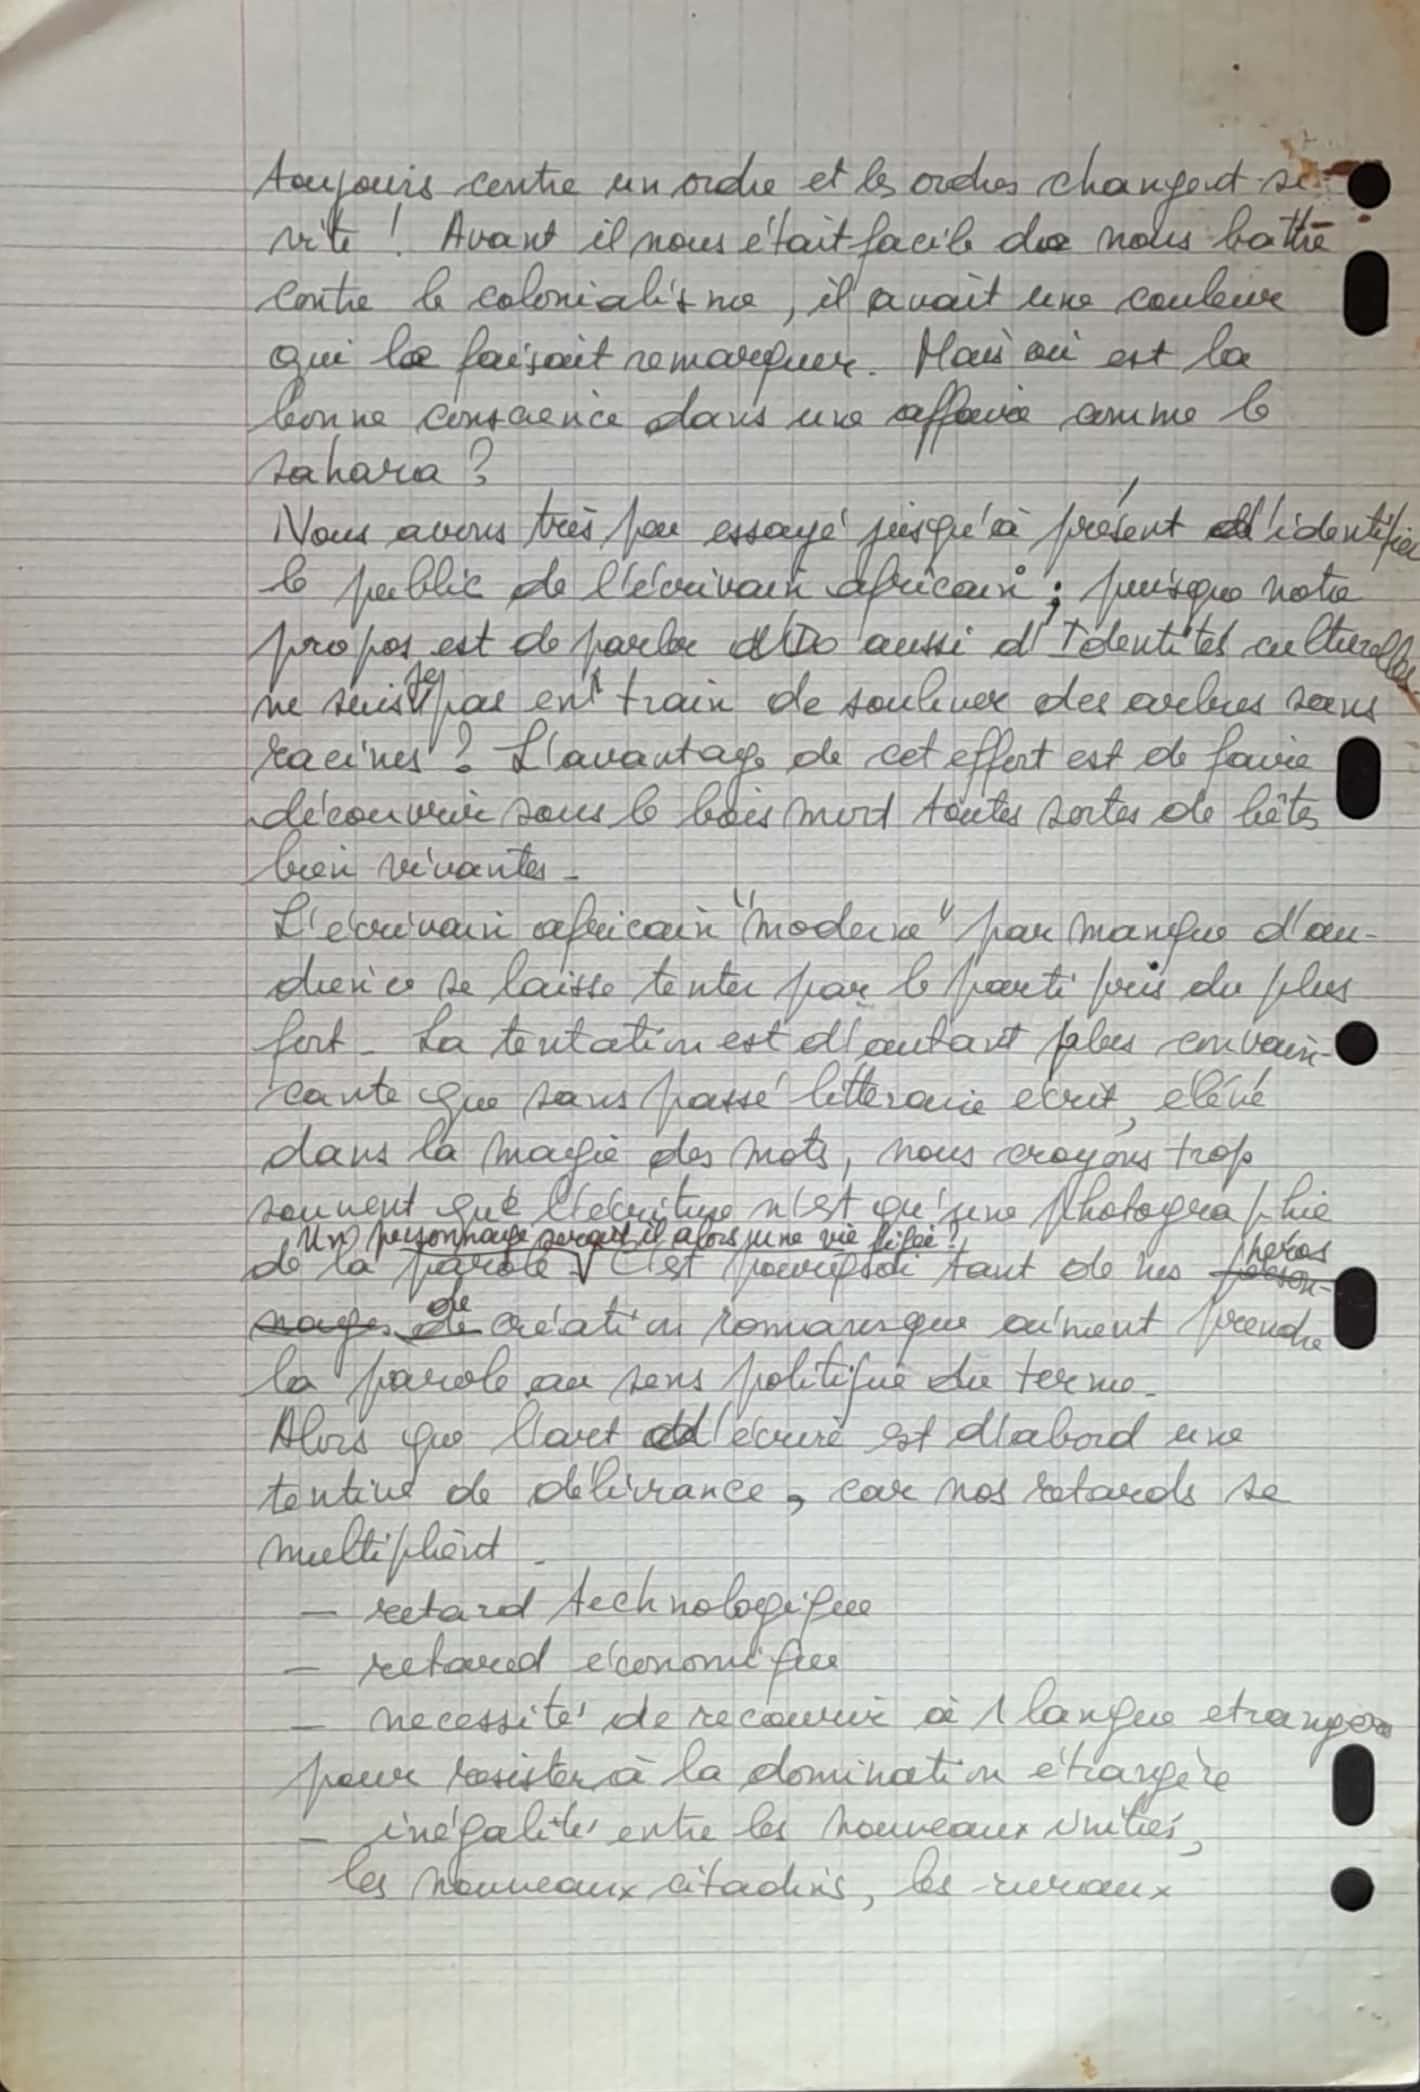 toujours contre un ordre et les ordres changent si
vite ! Avant il nous était facile de nous battre
contre le colonialisme, il avait une couleur
qui le faisait remarquer. Mais où est la
bonne conscience dans une affaire comme le
sahara ?
Nous avons très peu essayé jusqu'à présent d'identifier
le public de l'écrivain africain ; puisque notre
propos est de parler aussi d'Identités culturelles
ne suis je pas en train de soulever des arbres sans
racines ? L'avantage de cet effort est de faire
découvrir sous le bois mort toutes sortes de bêtes
bien vivantes -
L'écrivain africain "moderne" par manque d'au-
dience se laisse tenter par le parti pris du plus
fort - La tentation est d'autant plus convain-
cante que sans passé litteraire ecrit, élévé
dans la magie des mots, nous croyons trop
souvent que l'écriture n'est qu'une photographie
Un personnage serait il alors une vie figée ?
de la parole - C'est pourquoi tant de nos héros
person-
nages de création romanesque aiment prendre
la parole au sens politique du terme -
Alors que l'art d'écrire est d'abord une
tentive de délivrance, car nos retards se
multiplient -
- retard technologique
- retard économique
- necessité de recourir à 1 langue etrangere
pour resister à la domination étrangère
- inégalités entre les nouveaux initiés,
les nouveaux citadins, les ruraux